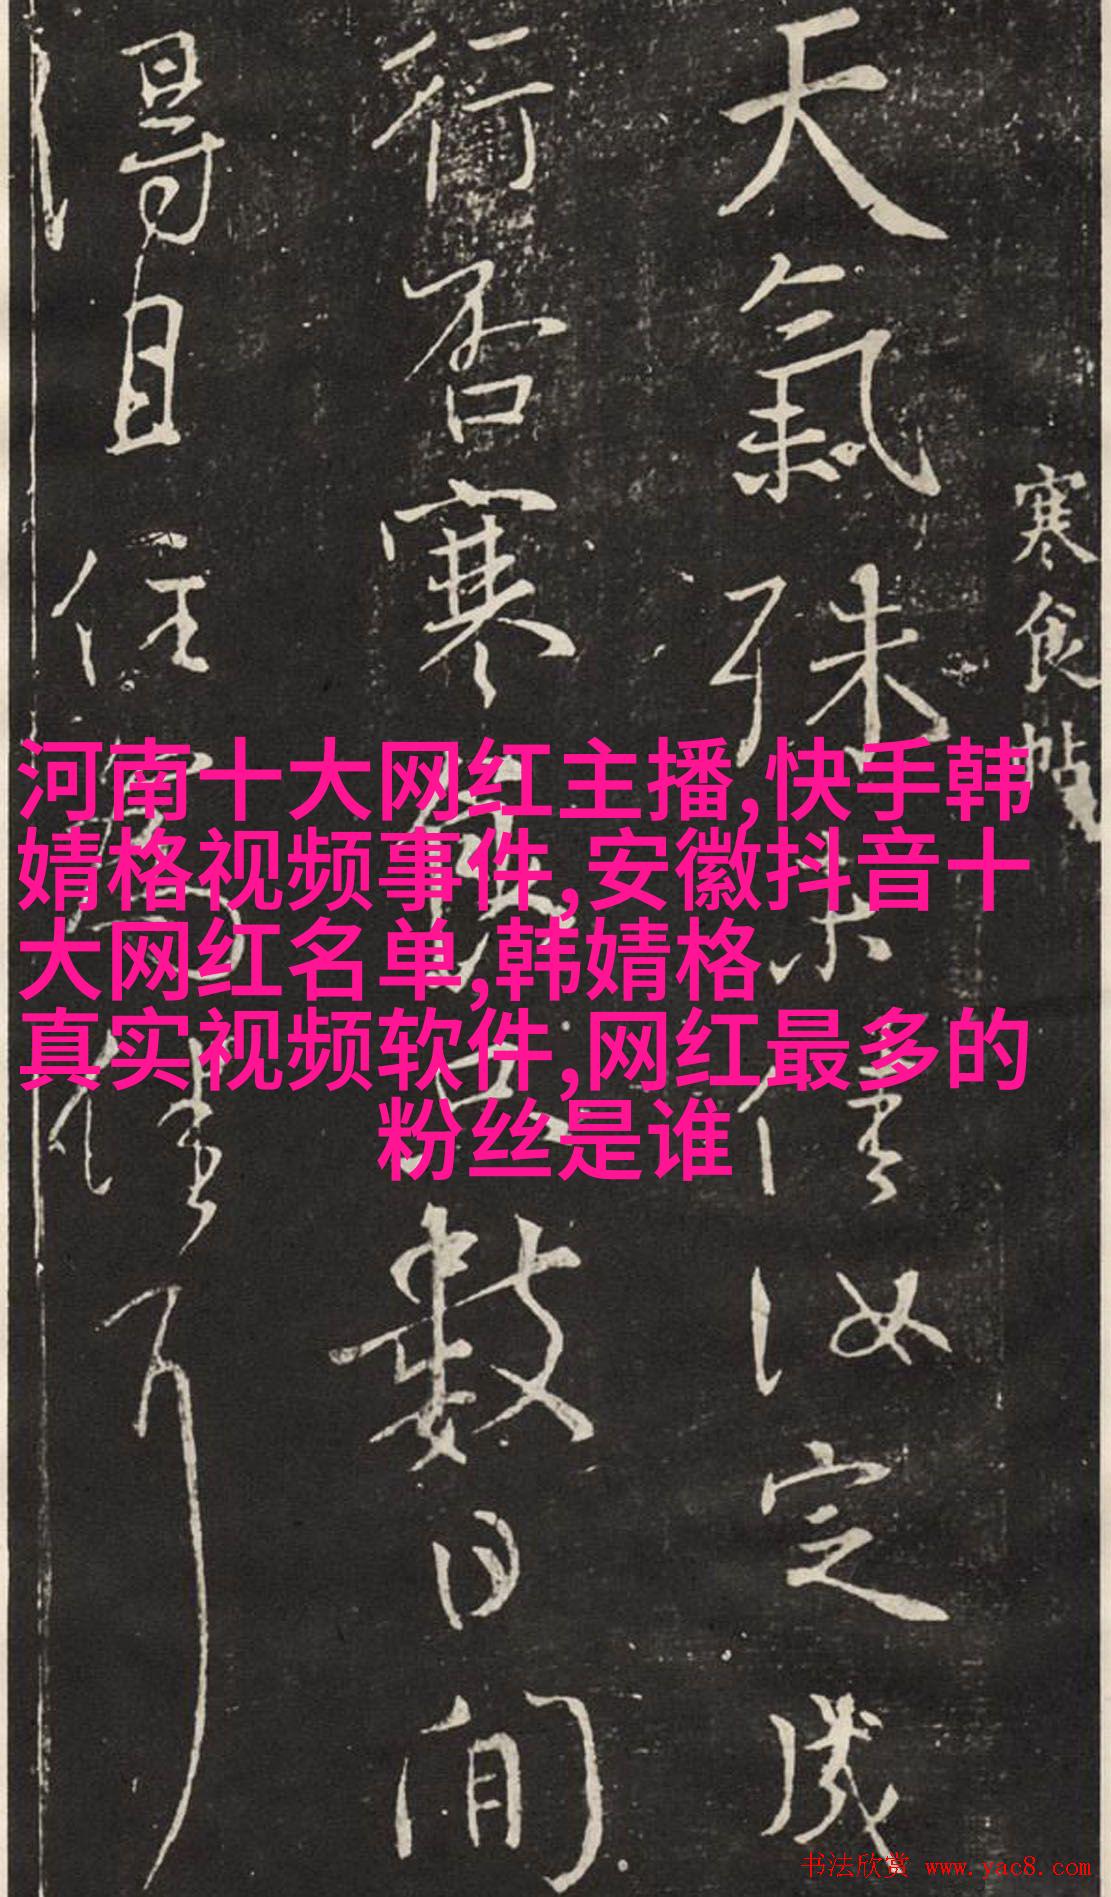 寒食帖
天氣殊未佳汝定成
行否寒食只數日間
得且住為佳耳
河南十大网红主播,快手韩
婧格视频事件,安徽抖音十
大网红名单,韩婧格
真实视频软件,网红最多的
粉丝是谁
书法欣赏 www.yac8.com